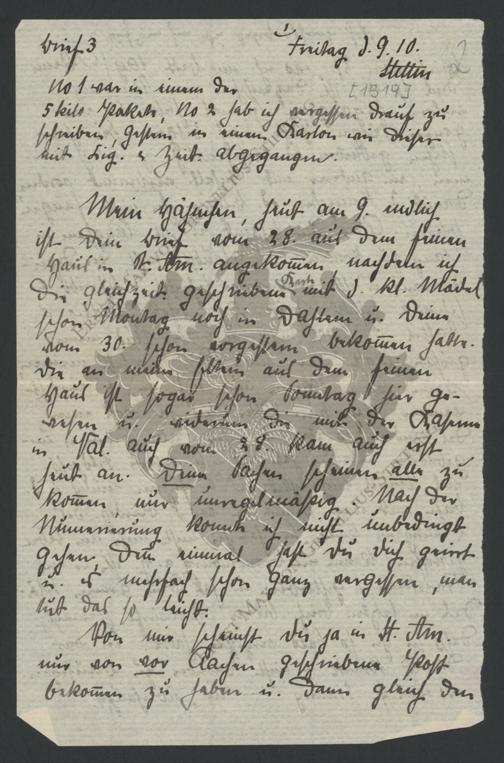 Brief 3
Freitag d. 9. 10.
2
Stettin
[1919]
No 1 war in einem der
5 kilo Pakete, No 2 hab ich vergessen drauf zu
schreiben, gestern in einem Karton wie dieser
mit Zig. u Zeit. abgegangen.
Mein Hähnchen, heut am 9. endlich
ist Dein Brief vom 28. aus dem feinen
Haus in St. Am. angekommen nachdem ich
die gleichzeit. geschriebene Karte mit d. kl. Mädel
schon Montag noch in Dahlem u. Deine
vom 30. schon vorgestern bekommen hatte.
Die an meine Eltern aus dem feinen
Haus ist sogar schon Sonntag hier ge-
wesen u. wiederum die mit der Kaserne
in Val. auch vom 28 kam auch erst
heut an. Deine Sachen scheinen alle zu
kommen, nur unregelmäßig. Nach der
Numerierung konnte ich nicht unbedingt
gehen, denn einmal hast Du Dich geirrt
u. es mehrfach schon ganz vergessen, man
tut das so leicht.
Von mir scheinst Du ja in St. Am.
nur von vor Aachen geschriebene Post
bekommen zu haben u. dann gleich den